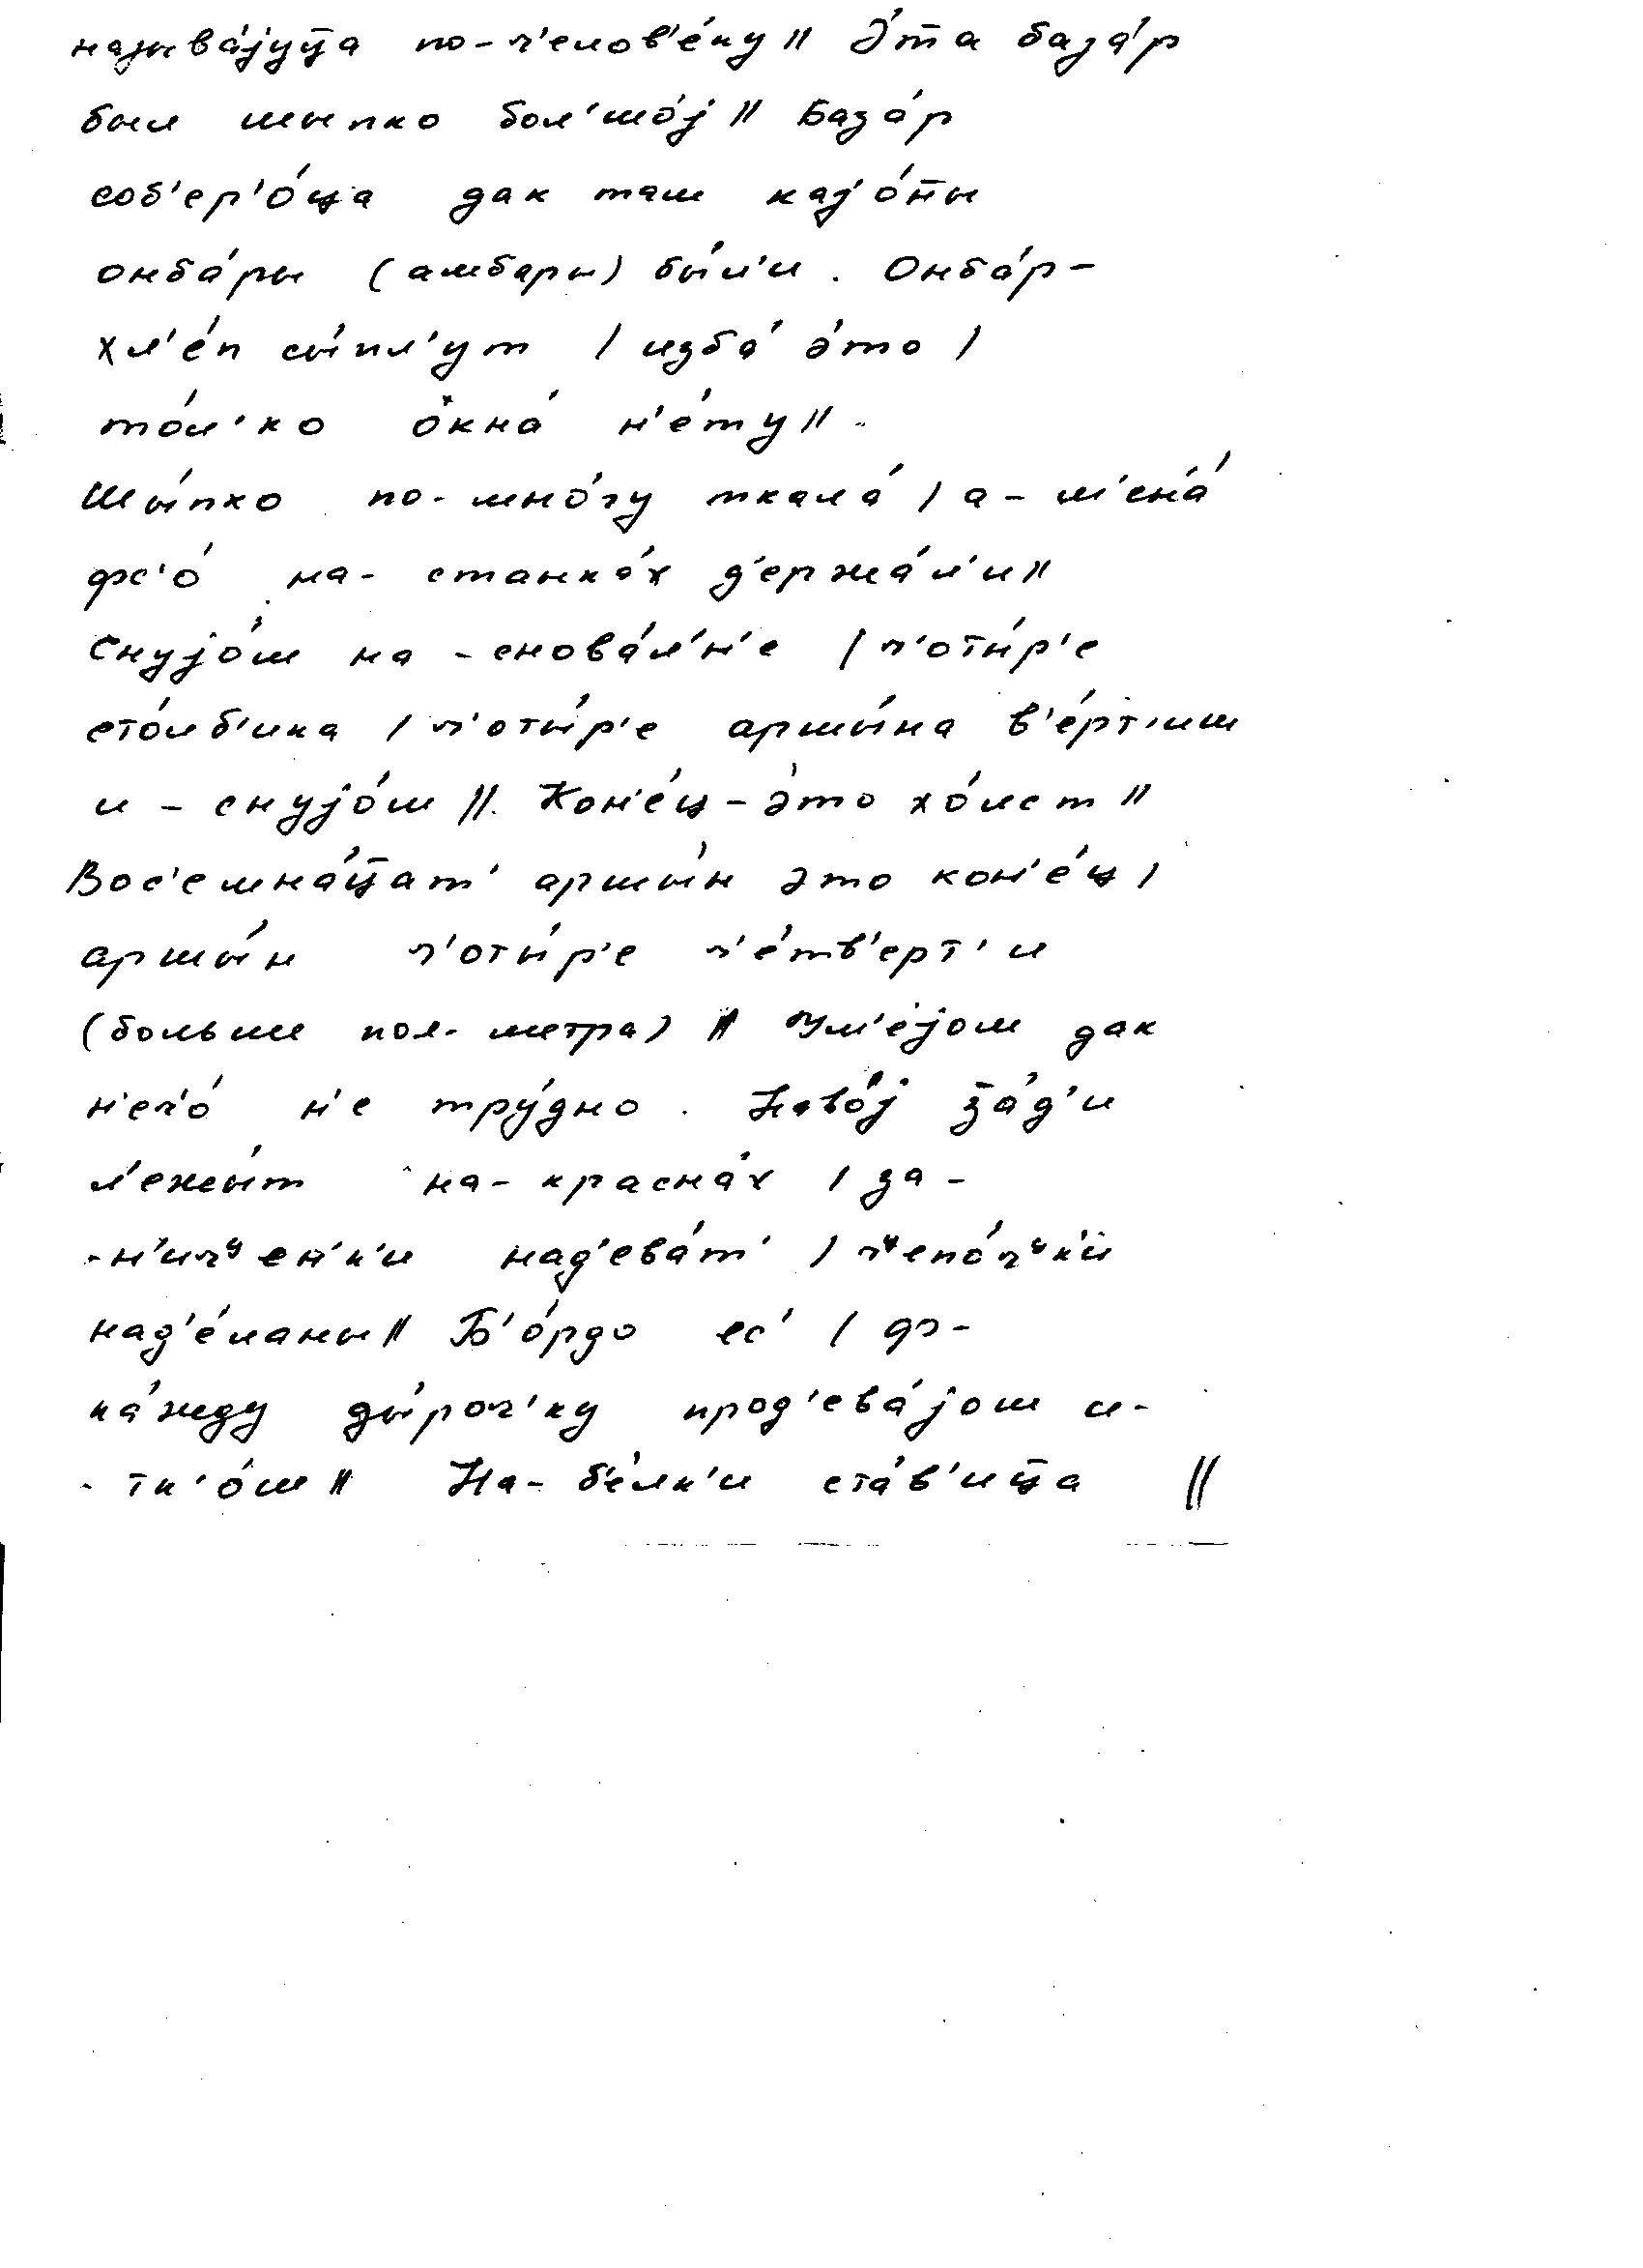 называ́jуц̄а по-ч'елов'е́ку || Э́т̄а база́р
был шыпко бол'шо́j || База́р
соб'ер'о́ца дак там каjо́т̄ы
онба́ры (амбары) бы́л'и. Онба́р-
хл'е́п сы́пл'ут / изба́ э́то /
то́л'ко о̂кна́ н'е́ту ||
Шы́пко по-мно́гу ткала́ / а-м'ена́
фс'о́ на-станка́х д'ержа́л'и ||
Снуjо́ш на-снова́л'н'е / ч'оты́р'е
сто́лб'ика / ч'оты́р'е аршы́на в'е́рт'иш
и-снуjо́ш ||. Кон'е́ц-э́то хо́лст ||
Вос'емна́ц̄ат' аршы́н это кон'е́ц /
аршы́н ч'оты́р'е ч'е́тв'ерт'и
(больше пол-метра) || Ум'е́jош дак
н'еч'о́ н'е тру́дно. Наво́j з̄а́д'и
л'ежы́т на-красна́х / за-
-н'ич'ᶣен'к'и над'ева́т' / ч'ᶣепо́ч'ᶣк'и
над'е́ланы || Б'о́рдо ес' / ф-
ка́жду ды́роч'ку прод'ева́jош и-
-тк'о́ш || На-б'е́лк'и ста́в'иц̄а ||